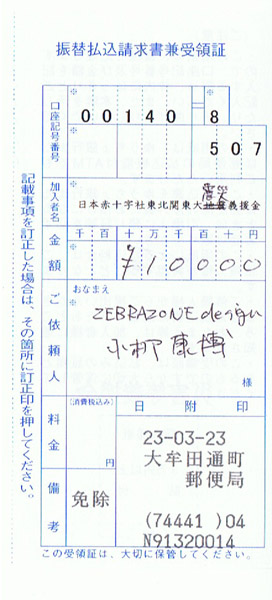 振替払込請求書兼受領証
口座記号番号
※
00140
※
8
507
加入者名
※
日本赤十字社東北関東大震災義援金
金額
千 百 十 万 千 百 十 円
※
¥100000
ご依頼人
おなまえ
※
ZEBRAZONE design
小柳康博
様
料金
(消費税込み)
円
備考
免除
日附印
23-03-23
大牟田通町
郵便局
(74441 )04
N91320014
この受領証は、大切に保管してください。
記載事項を訂正した場合は、その箇所に訂正印を押してください。